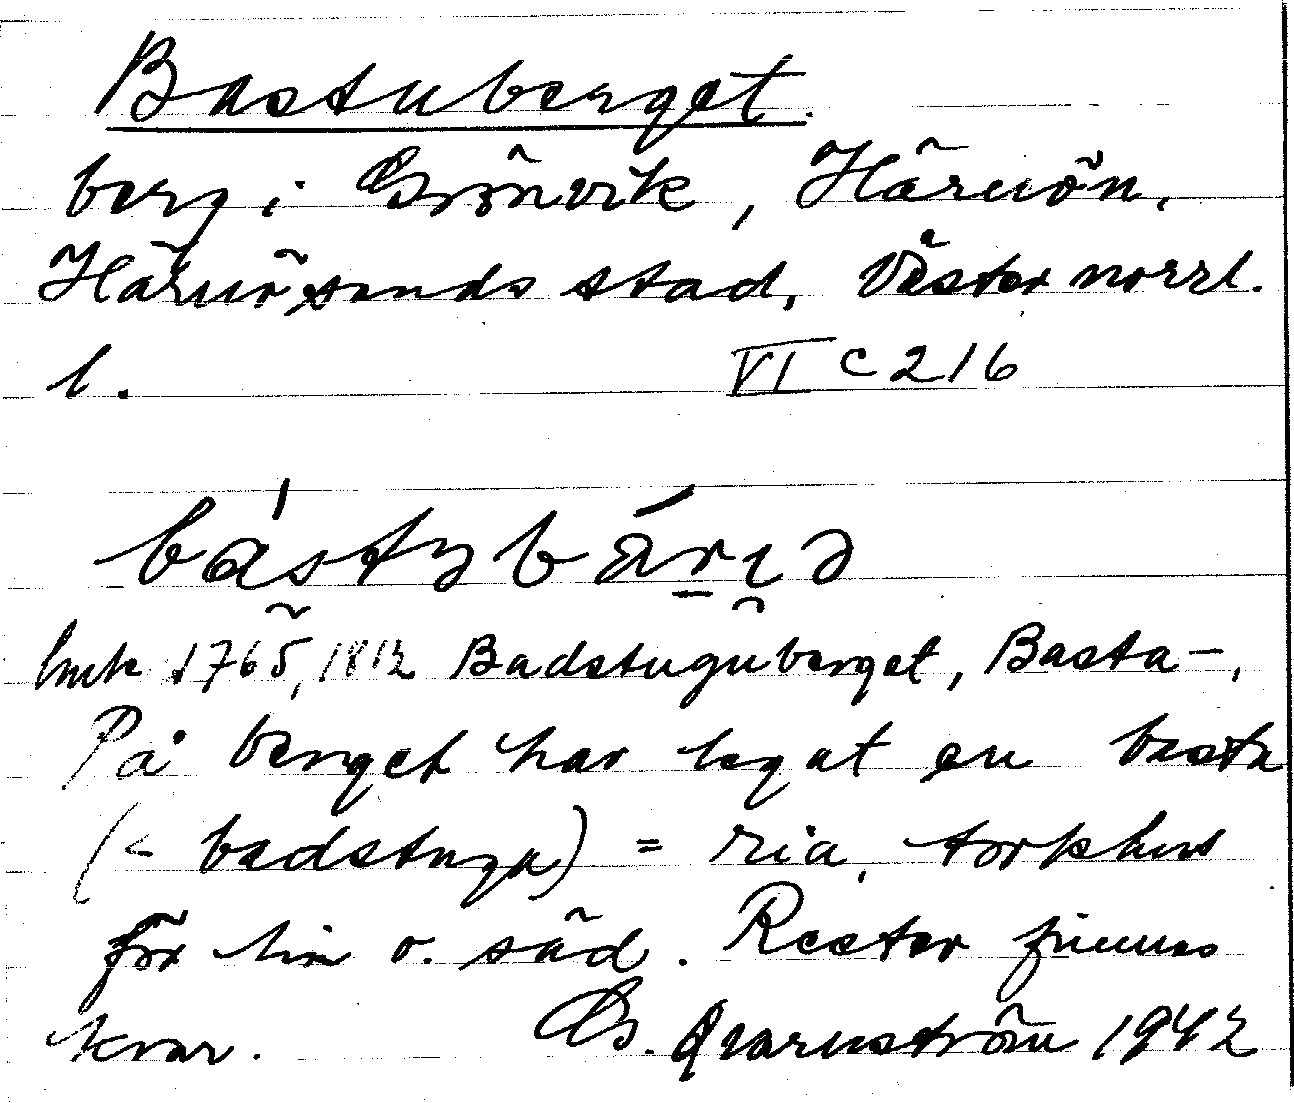 Bastuberget.
berg i Grönvik, Härnön,
Härnösands stad, Västernorrl.
l. VI c 216
bástybárɩə
1765, 1812 Badstuguberget, Basta-,
På berget har legat en bastu
(< badstuga) = ria, torkhus
för lin o. säd. Rester finnes
kvar. G. Qvarnström 1942